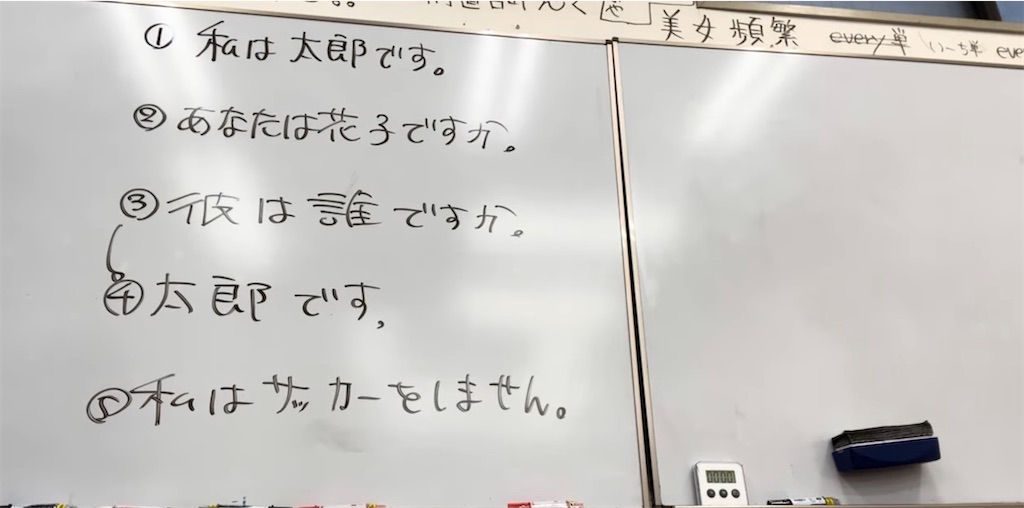 美女頻繁 every単 いーち単
① 私は太郎です。
② あなたは花子ですか。
③ 彼は誰ですか。
④ 太郎です。
⑤ 私はサッカーをしません。